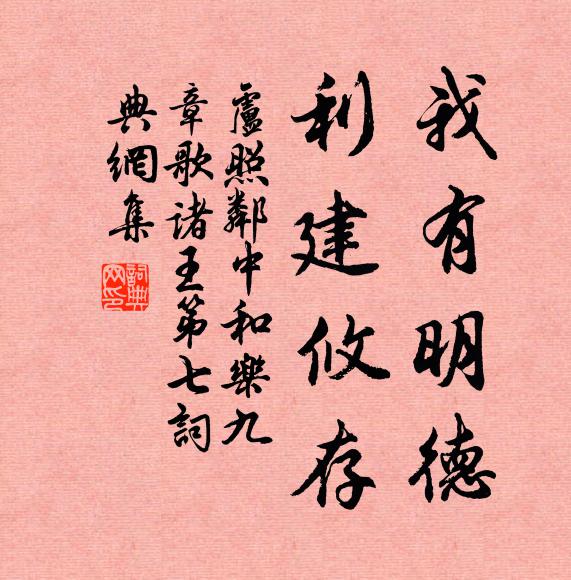 我有明德
利建攸存
盧照鄰中和樂九
章歌諸王第七詞
典網集
詞典网印